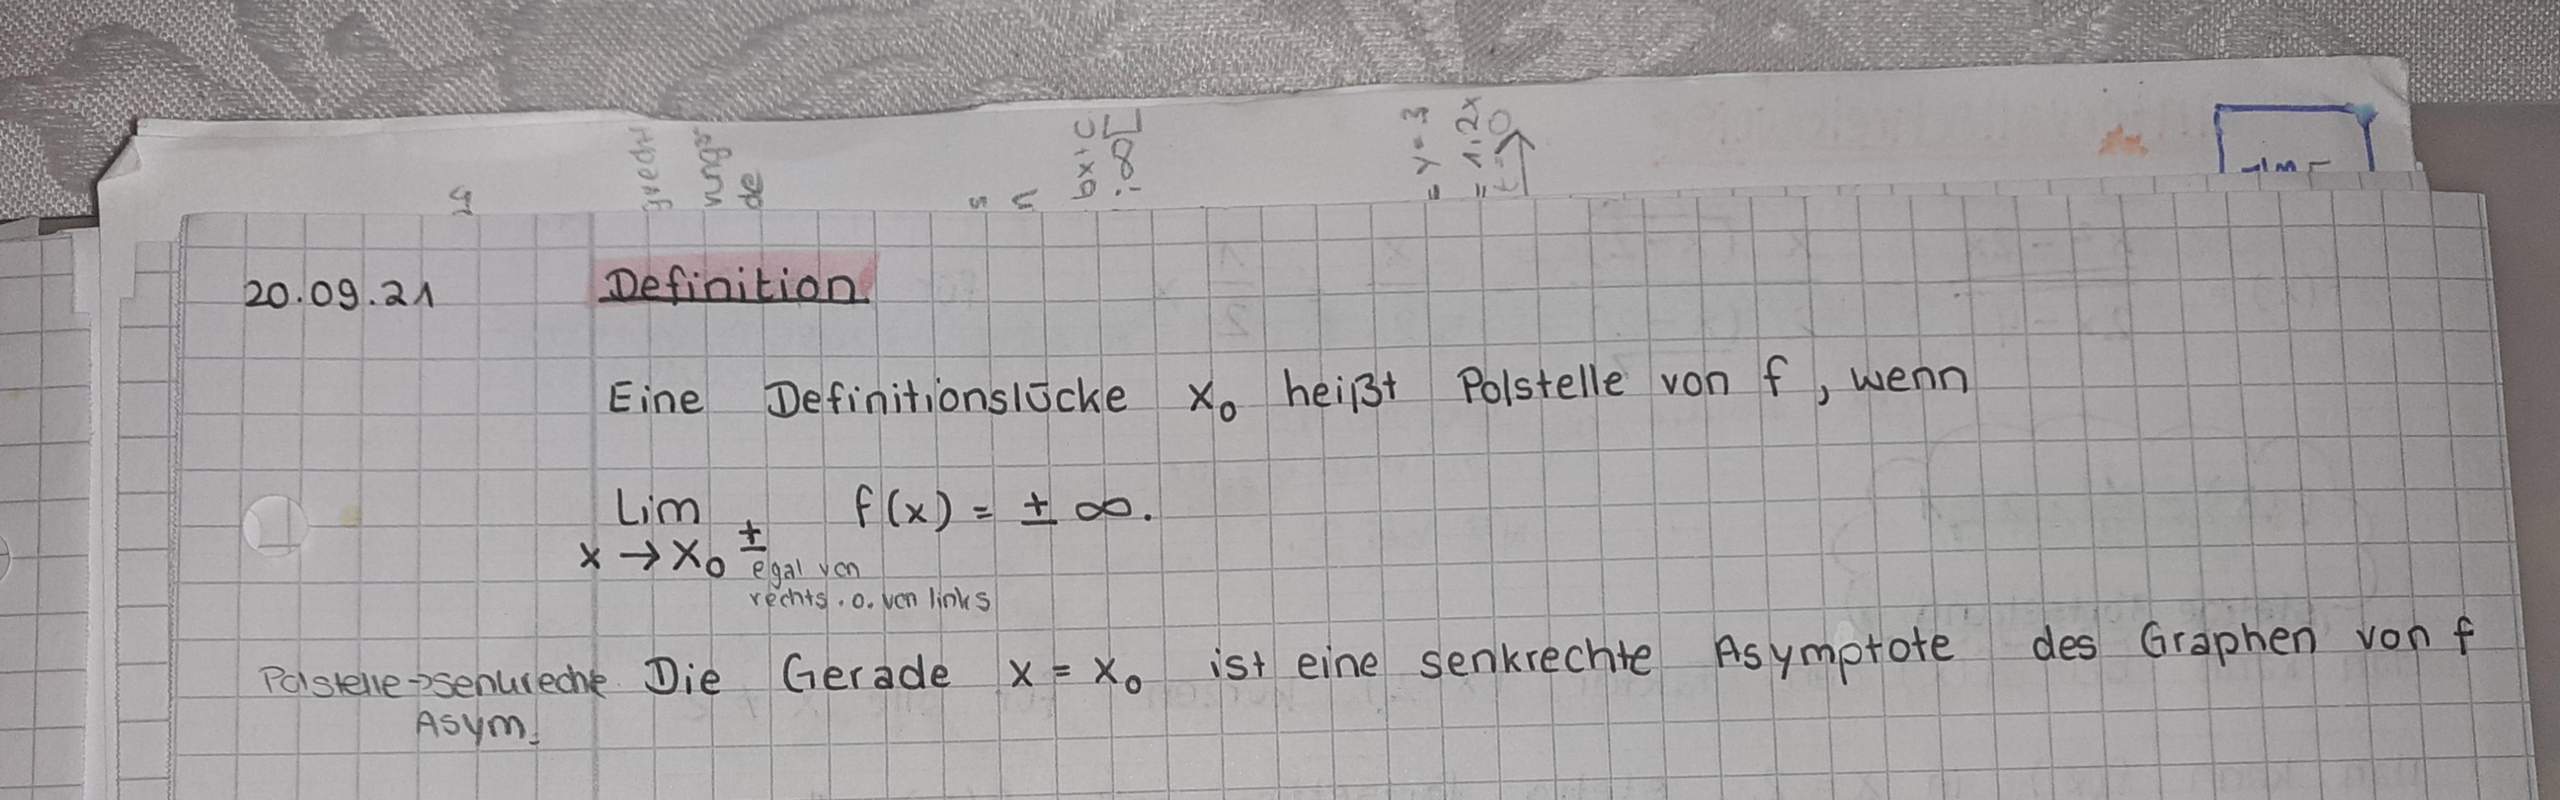 bx+c
= y = 3
= 1,2x
20.09.21 Definition
Eine Definitionslücke x₀ heißt Polstelle von f, wenn
Lim f(x) = ± ∞.
x → x₀ ±
egal von
rechts. o. von links
Polstelle → senkrechte Die Gerade x = x₀ ist eine senkrechte Asymptote des Graphen von f
Asym.